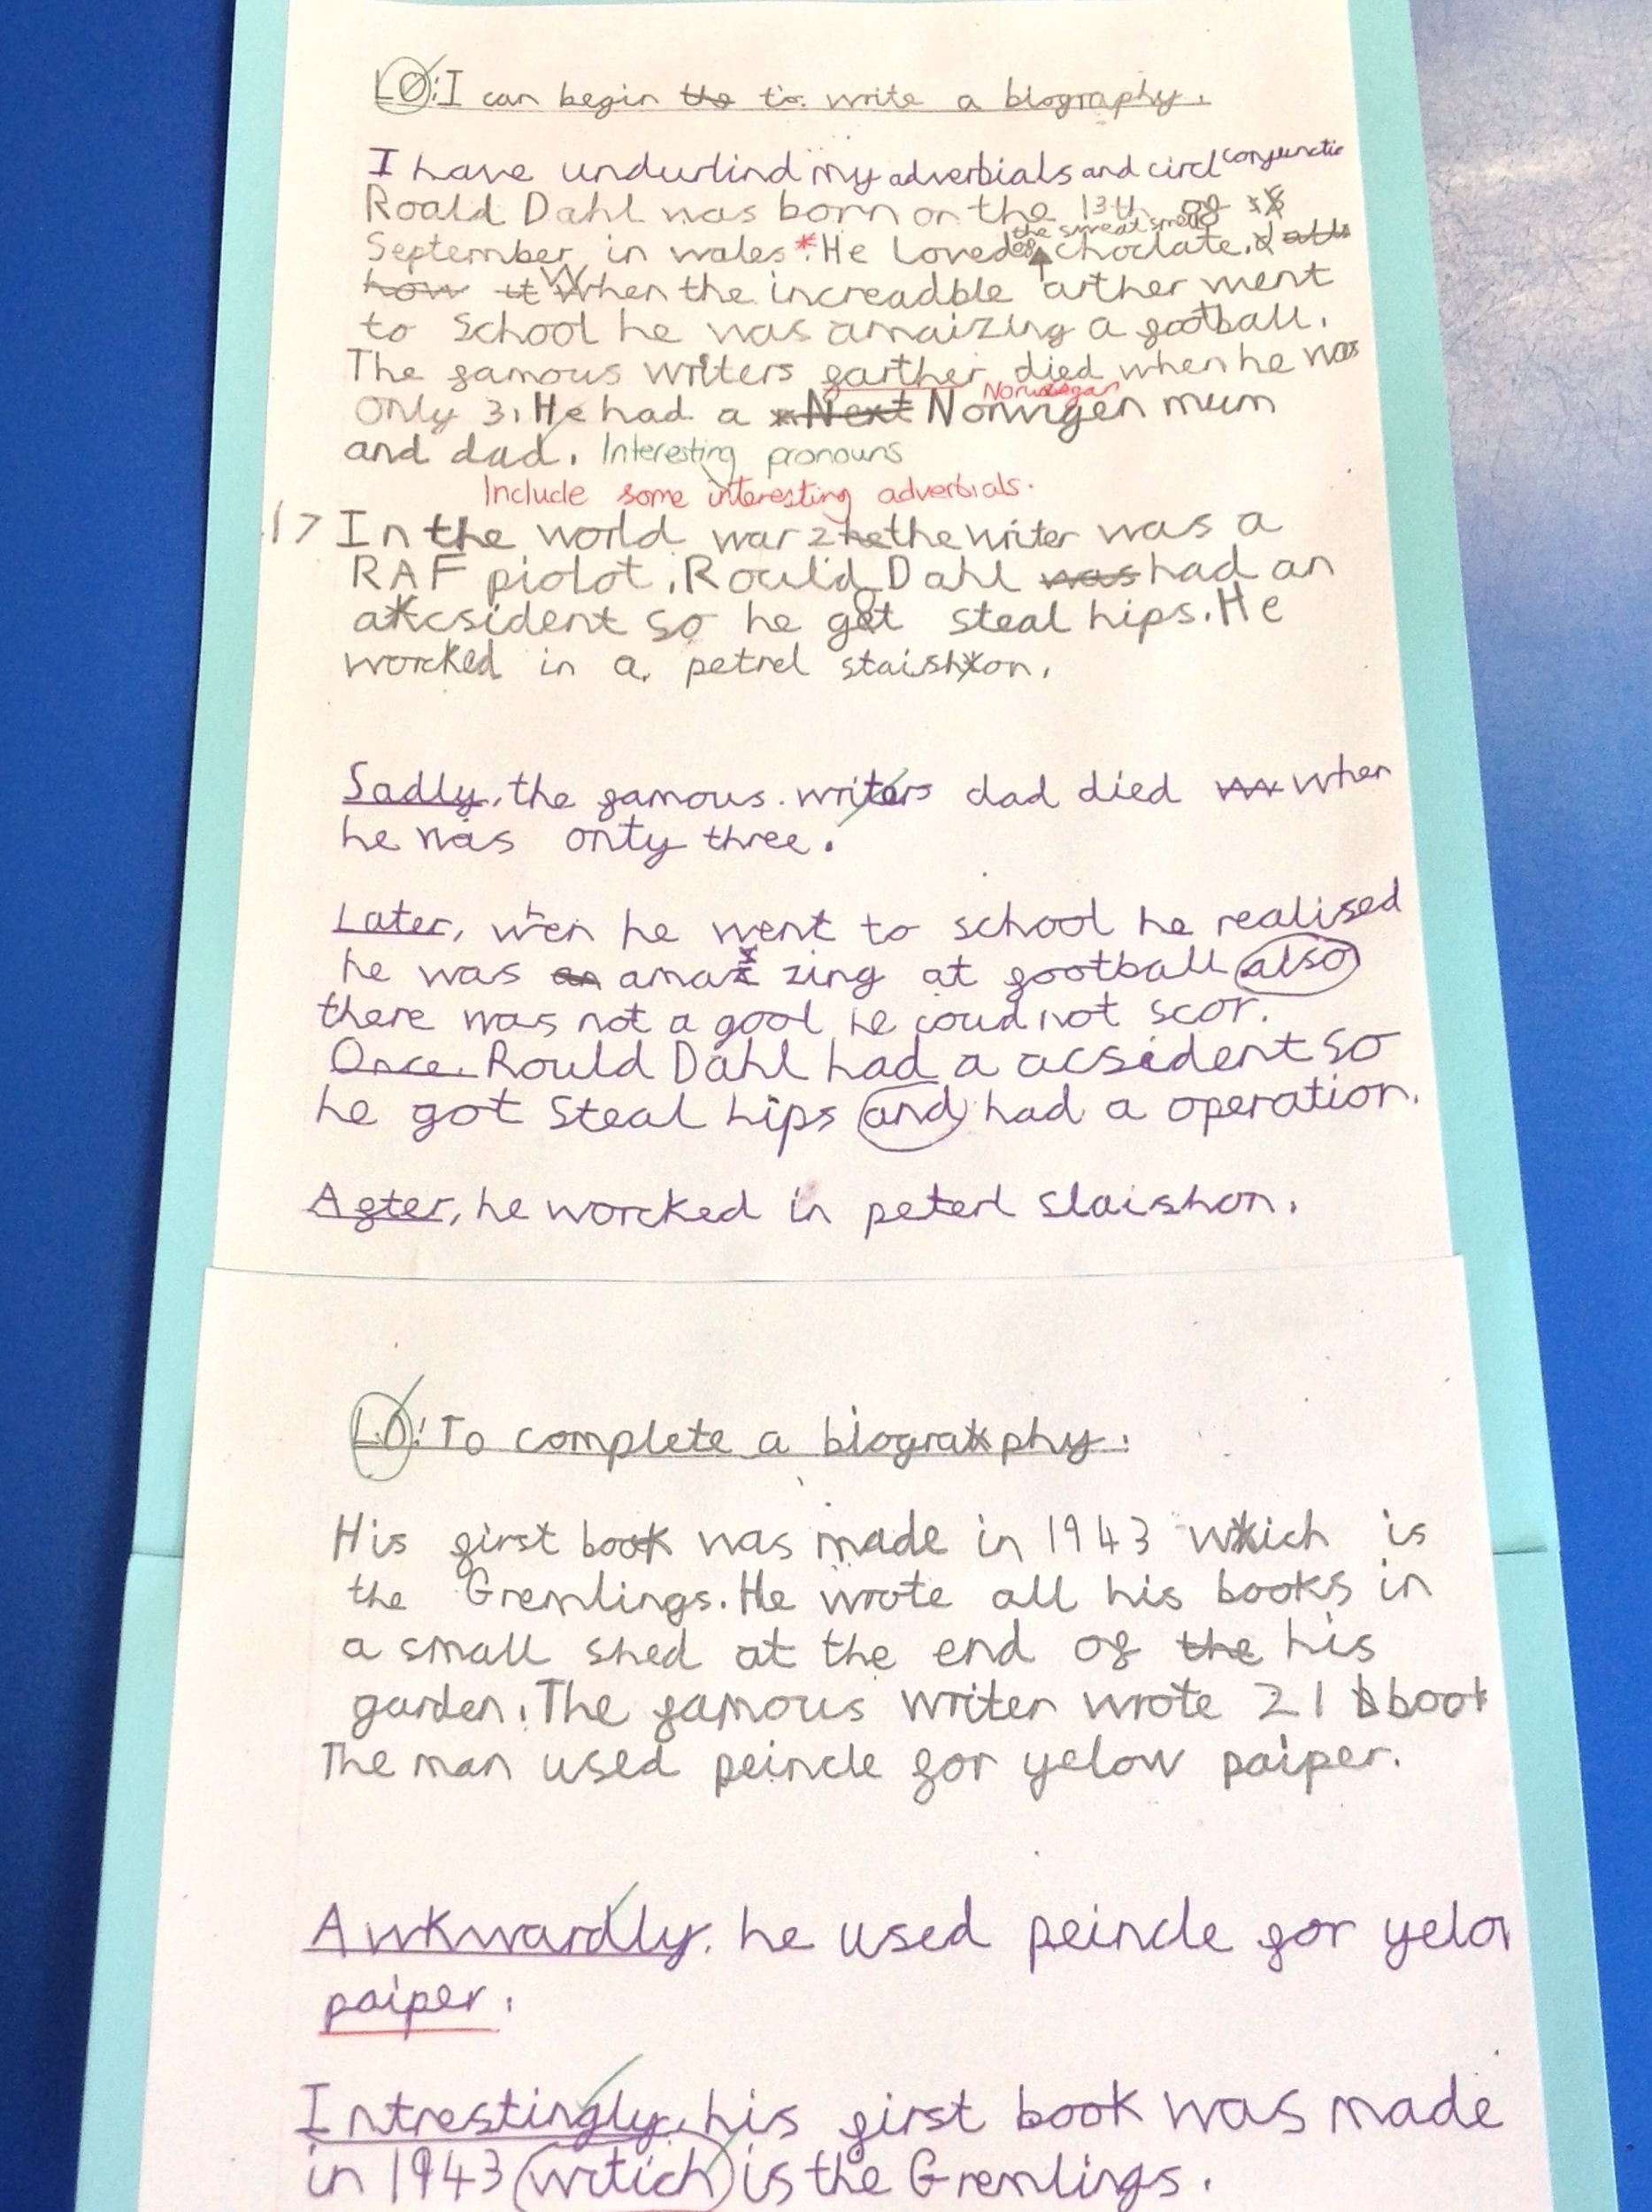 LO: I can begin the to write a biography.
I have undurlind my adverbials and circl conjunctio
Roald Dahl was born on the 13th of
the sweat smell
September in wales.* He loved of choclate.
how it When the increadble arther went
to School he was amaizing a football.
The famous writers farther died when he was
Norwegan
only 3. He had a Next Norwigen mum
and dad. Interesting pronouns
Include some interesting adverbials.
17 In the world war 2 he the writer was a
RAF piolot. Rould Dahl was had an
akcsident so he got steal hips. He
worcked in a petrel staishon.
Sadly, the famous writers dad died when
he was only three.
Later, when he went to school he realised
he was an amazing at football also
there was not a gool he coud not scor.
Once. Rould Dahl had a acsident so
he got steal hips and had a operation.
After, he worcked in peterl staishon.
LO: To complete a biography.
His first book was made in 1943 which is
the Gremlings. He wrote all his books in
a small shed at the end of the his
garden. The famous writer wrote 21 book
The man used peincle for yelow paiper.
Awkwardly, he used peincle for yelow
paiper.
Intrestingly, his first book was made
in 1943 witich is the Gremlings.